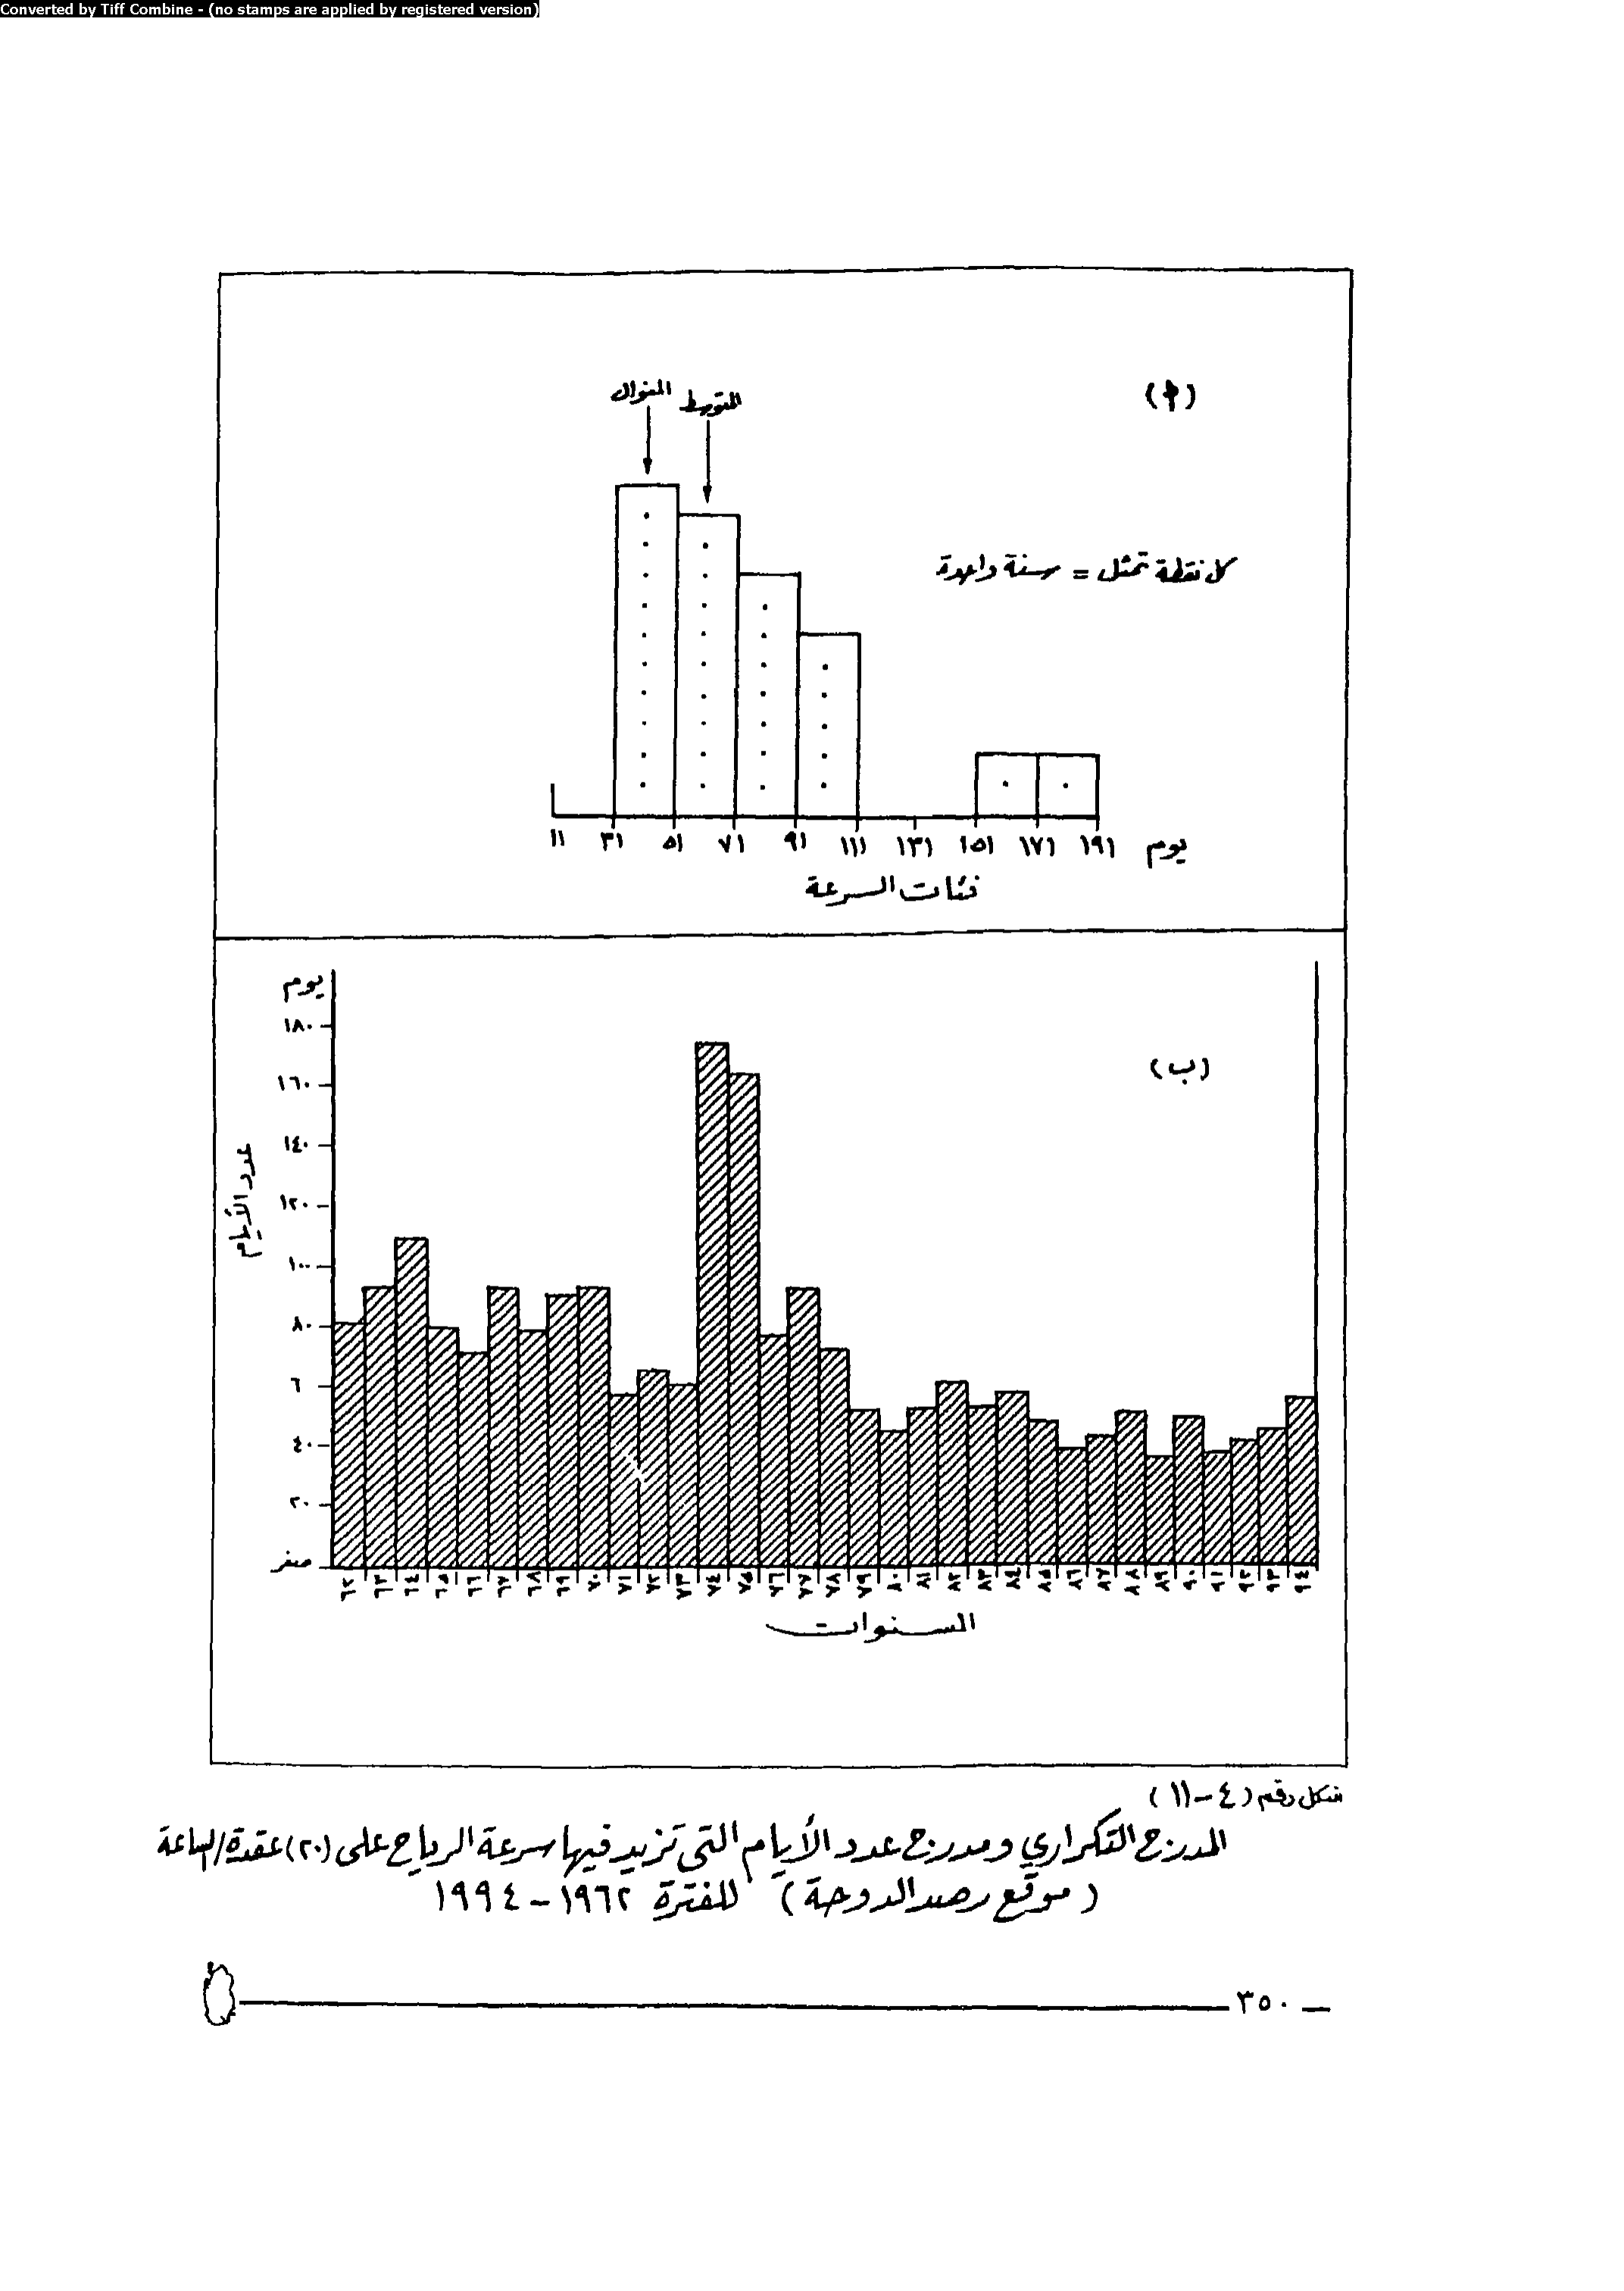 Converted by Tiff Combine - (no stamps are applied by registered version)
(أ)
المنوال
المتوسط
كل نقطة تمثل = سنة واحدة
١١ ٣١ ٥١ ٧١ ٩١ ١١١ ١٣١ ١٥١ ١٧١ ١٩١ يوم
فئات السرعة
(ب)
يوم
١٨٠
١٦٠
١٤٠
١٢٠
١٠٠
٨٠
٦
٤٠
٢٠
صفر
عدد الأيام
٦٢ ٦٣ ٦٤ ٦٥ ٦٦ ٦٧ ٦٨ ٦٩ ٧٠ ٧١ ٧٢ ٧٣ ٧٤ ٧٥ ٧٦ ٧٧ ٧٨ ٧٩ ٨٠ ٨١ ٨٢ ٨٣ ٨٤ ٨٥ ٨٦ ٨٧ ٨٨ ٨٩ ٩٠ ٩١ ٩٢ ٩٣ ٩٤
السنوات
شكل رقم (٤-١١)
المدرج التكراري ومدرج عدد الأيام التي تزيد فيها سرعة الرياح على (٢٠) عقدة/الساعة
(موقع رصد الدوحة) للفترة ١٩٦٢-١٩٩٤
٣٥٠ —